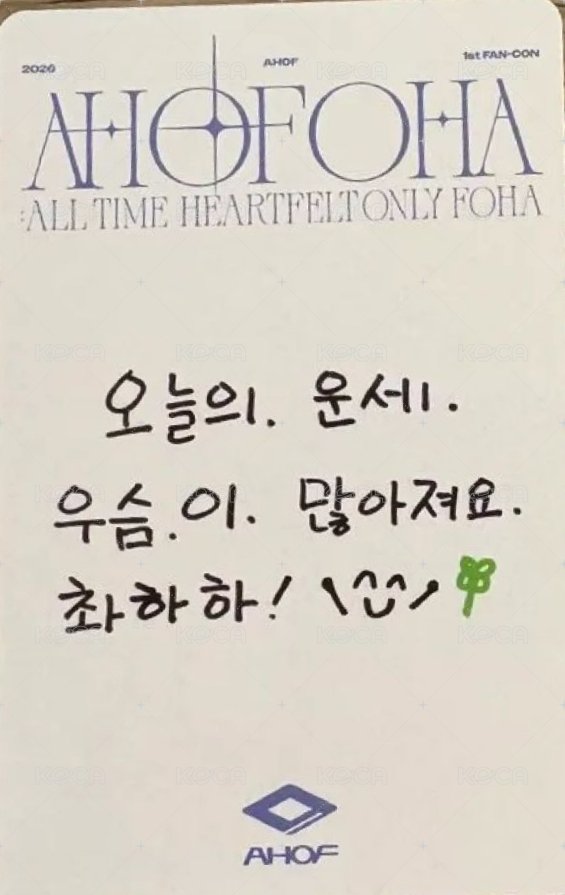 2026 AHOF 1st FAN-CON
AHOFOHA
:ALL TIME HEARTFELT ONLY FOHA
오늘의. 운세.
우슴.이. 많아져요.
촤하하! \^U^/
AHOF